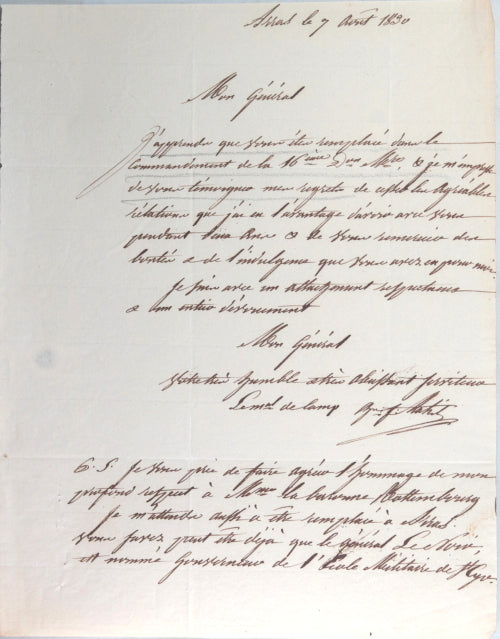 Arras le 7 Août 1830
Mon Général
J'apprends que vous êtes remplacé dans le
Commandement de la 16ième Don Mre, & je m'empresse
de vous témoigner mes regrets de cesser les agréables
rélations que j'ai eu l'avantage d'avoir avec vous
pendant deux ans & de vous remercier des
bontés & de l'indulgence que vous avez eu pour moi.
Je suis avec un attachement respectueux
& un entier dévouement
Mon Général
Votre très humble & très obéissant serviteur
Le mal de camp
P. S. Je vous prie de faire agréer l'hommage de mon
profond respect à Mme la baronne Rottembourg
Je m'attends aussi à être remplacé à Arras.
Vous savez peut être déjà que le général Le Noir,
est nommé Gouverneur de l'École Militaire de St Cyr.